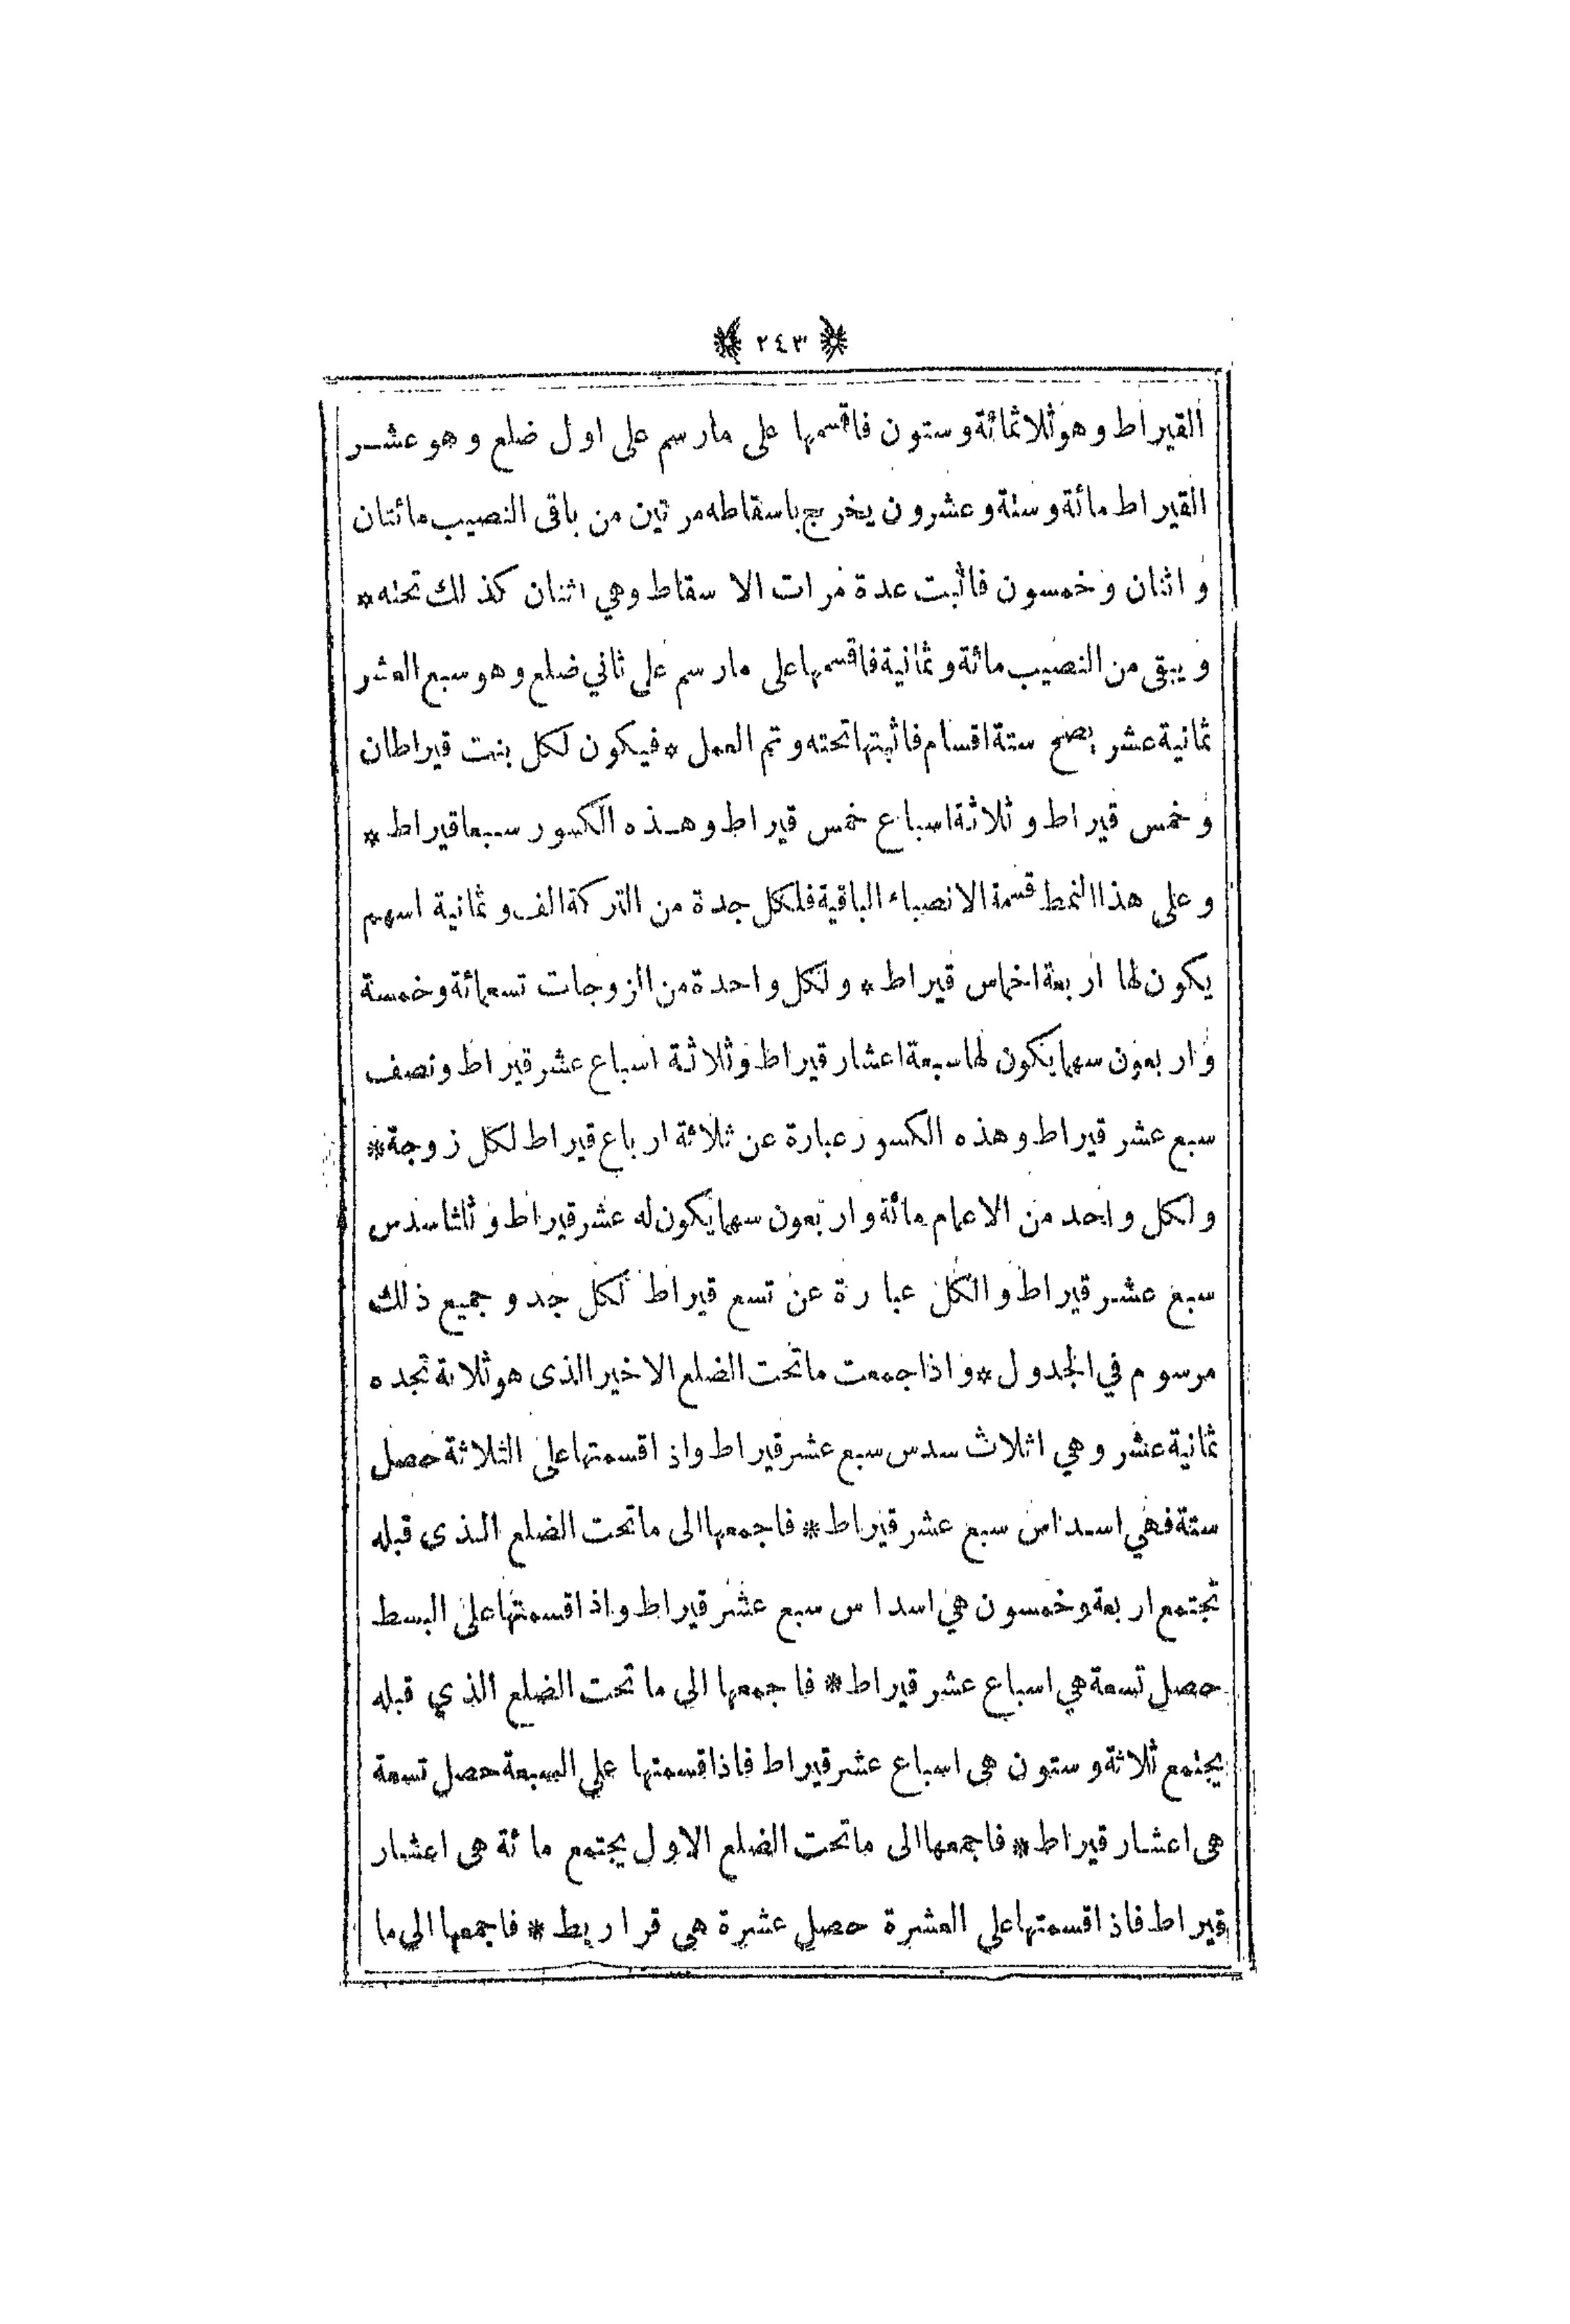 ﴿ ٢٤٣ ﴾
القيراط وهو ثلاثمائة وستون فاقسمها على مارسم على اول ضلع وهو عشر
القيراط مائة وستة وعشرون يخرج باسقاطه مرتين من باقى النصيب مائتان
و اثنان وخمسون فاثبت عدة مرات الاسقاط وهي اثنان كذلك تحته *
ويبقى من النصيب مائة وثمانية فاقسمها على مارسم على ثاني ضلع وهو سبع العشر
ثمانية عشر يصح ستة اقسام فاثبتها تحته وتم العمل * فيكون لكل بنت قيراطان
وخمس قيراط وثلاثة اسباع خمس قيراط وهذه الكسور سبعا قيراط *
وعلى هذا النمط قسمة الانصباء الباقية فلكل جدة من التركة الف وثمانية اسهم
يكون لها اربعة اخماس قيراط * ولكل واحدة من الزوجات تسعمائة وخمسة
واربعون سهما يكون لها سبعة اعشار قيراط وثلاثة اسباع عشر قيراط ونصف
سبع عشر قيراط وهذه الكسور عبارة عن ثلاثة ارباع قيراط لكل زوجة *
ولكل واحد من الاعمام مائة واربعون سهما يكون له عشر قيراط وثلثا سدس
سبع عشر قيراط والكل عبارة عن تسع قيراط لكل جد وجميع ذلك
مرسوم في الجدول * واذا جمعت ماتحت الضلع الاخير الذى هو ثلاثة تجده
ثمانية عشر وهي اثلاث سدس سبع عشر قيراط واذا قسمتها على الثلاثة حصل
ستة فهي اسداس سبع عشر قيراط * فاجمعها الى ماتحت الضلع الذى قبله
تجتمع اربعة وخمسون هي اسداس سبع عشر قيراط واذا قسمتها على البسط
حصل تسعة هي اسباع عشر قيراط * فاجمعها الى ماتحت الضلع الذي قبله
يجتمع ثلاثة وستون هى اسباع عشر قيراط فاذا قسمتها على السبعة حصل تسعة
هى اعشار قيراط * فاجمعها الى ماتحت الضلع الاول يجتمع مائة هى اعشار
قيراط فاذا قسمتها على العشرة حصل عشرة هى قراريط * فاجمعها الى ما